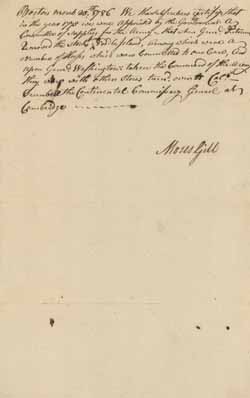 Boston March 20, 1786 We the Subscribers certify, that
in the year 1775 we were appointed by the Government a
Committee of Supplies for the Army, that when General Putnam
moved the Stock off Island, among which were a
number of Sheep, which were committed to our Care, and
upon General Washington's taking the Command of the Army
they were with the other Stores turned over to
Trumbull the Continental Commissary General at
Cambridge
Moses Gill